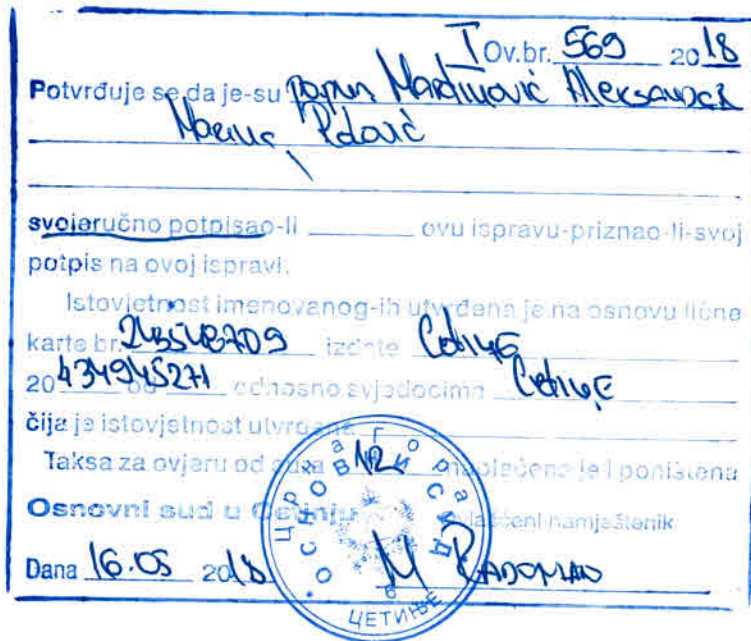 I Ov.br. 569 2018
Potvrđuje se da je-su Martinović Aleksandar
svojeručno potpisao-li ovu ispravu-priznao-li-svoj
potpis na ovoj ispravi.
Istovjetnost imenovanog-ih utvrđena je na osnovu lične
karte br. 243548709 izdate Cetinje
20 434945271 odnosno svjedocima Cetinje
čija je istovjetnost utvrđena
Taksa za ovjeru od naplaćena je i poništena
Osnovni sud u Cetinju namještenik
Dana 16.05 2018 M
Црна Гора
ОСНОВНИ СУД
ЦЕТИЊЕ